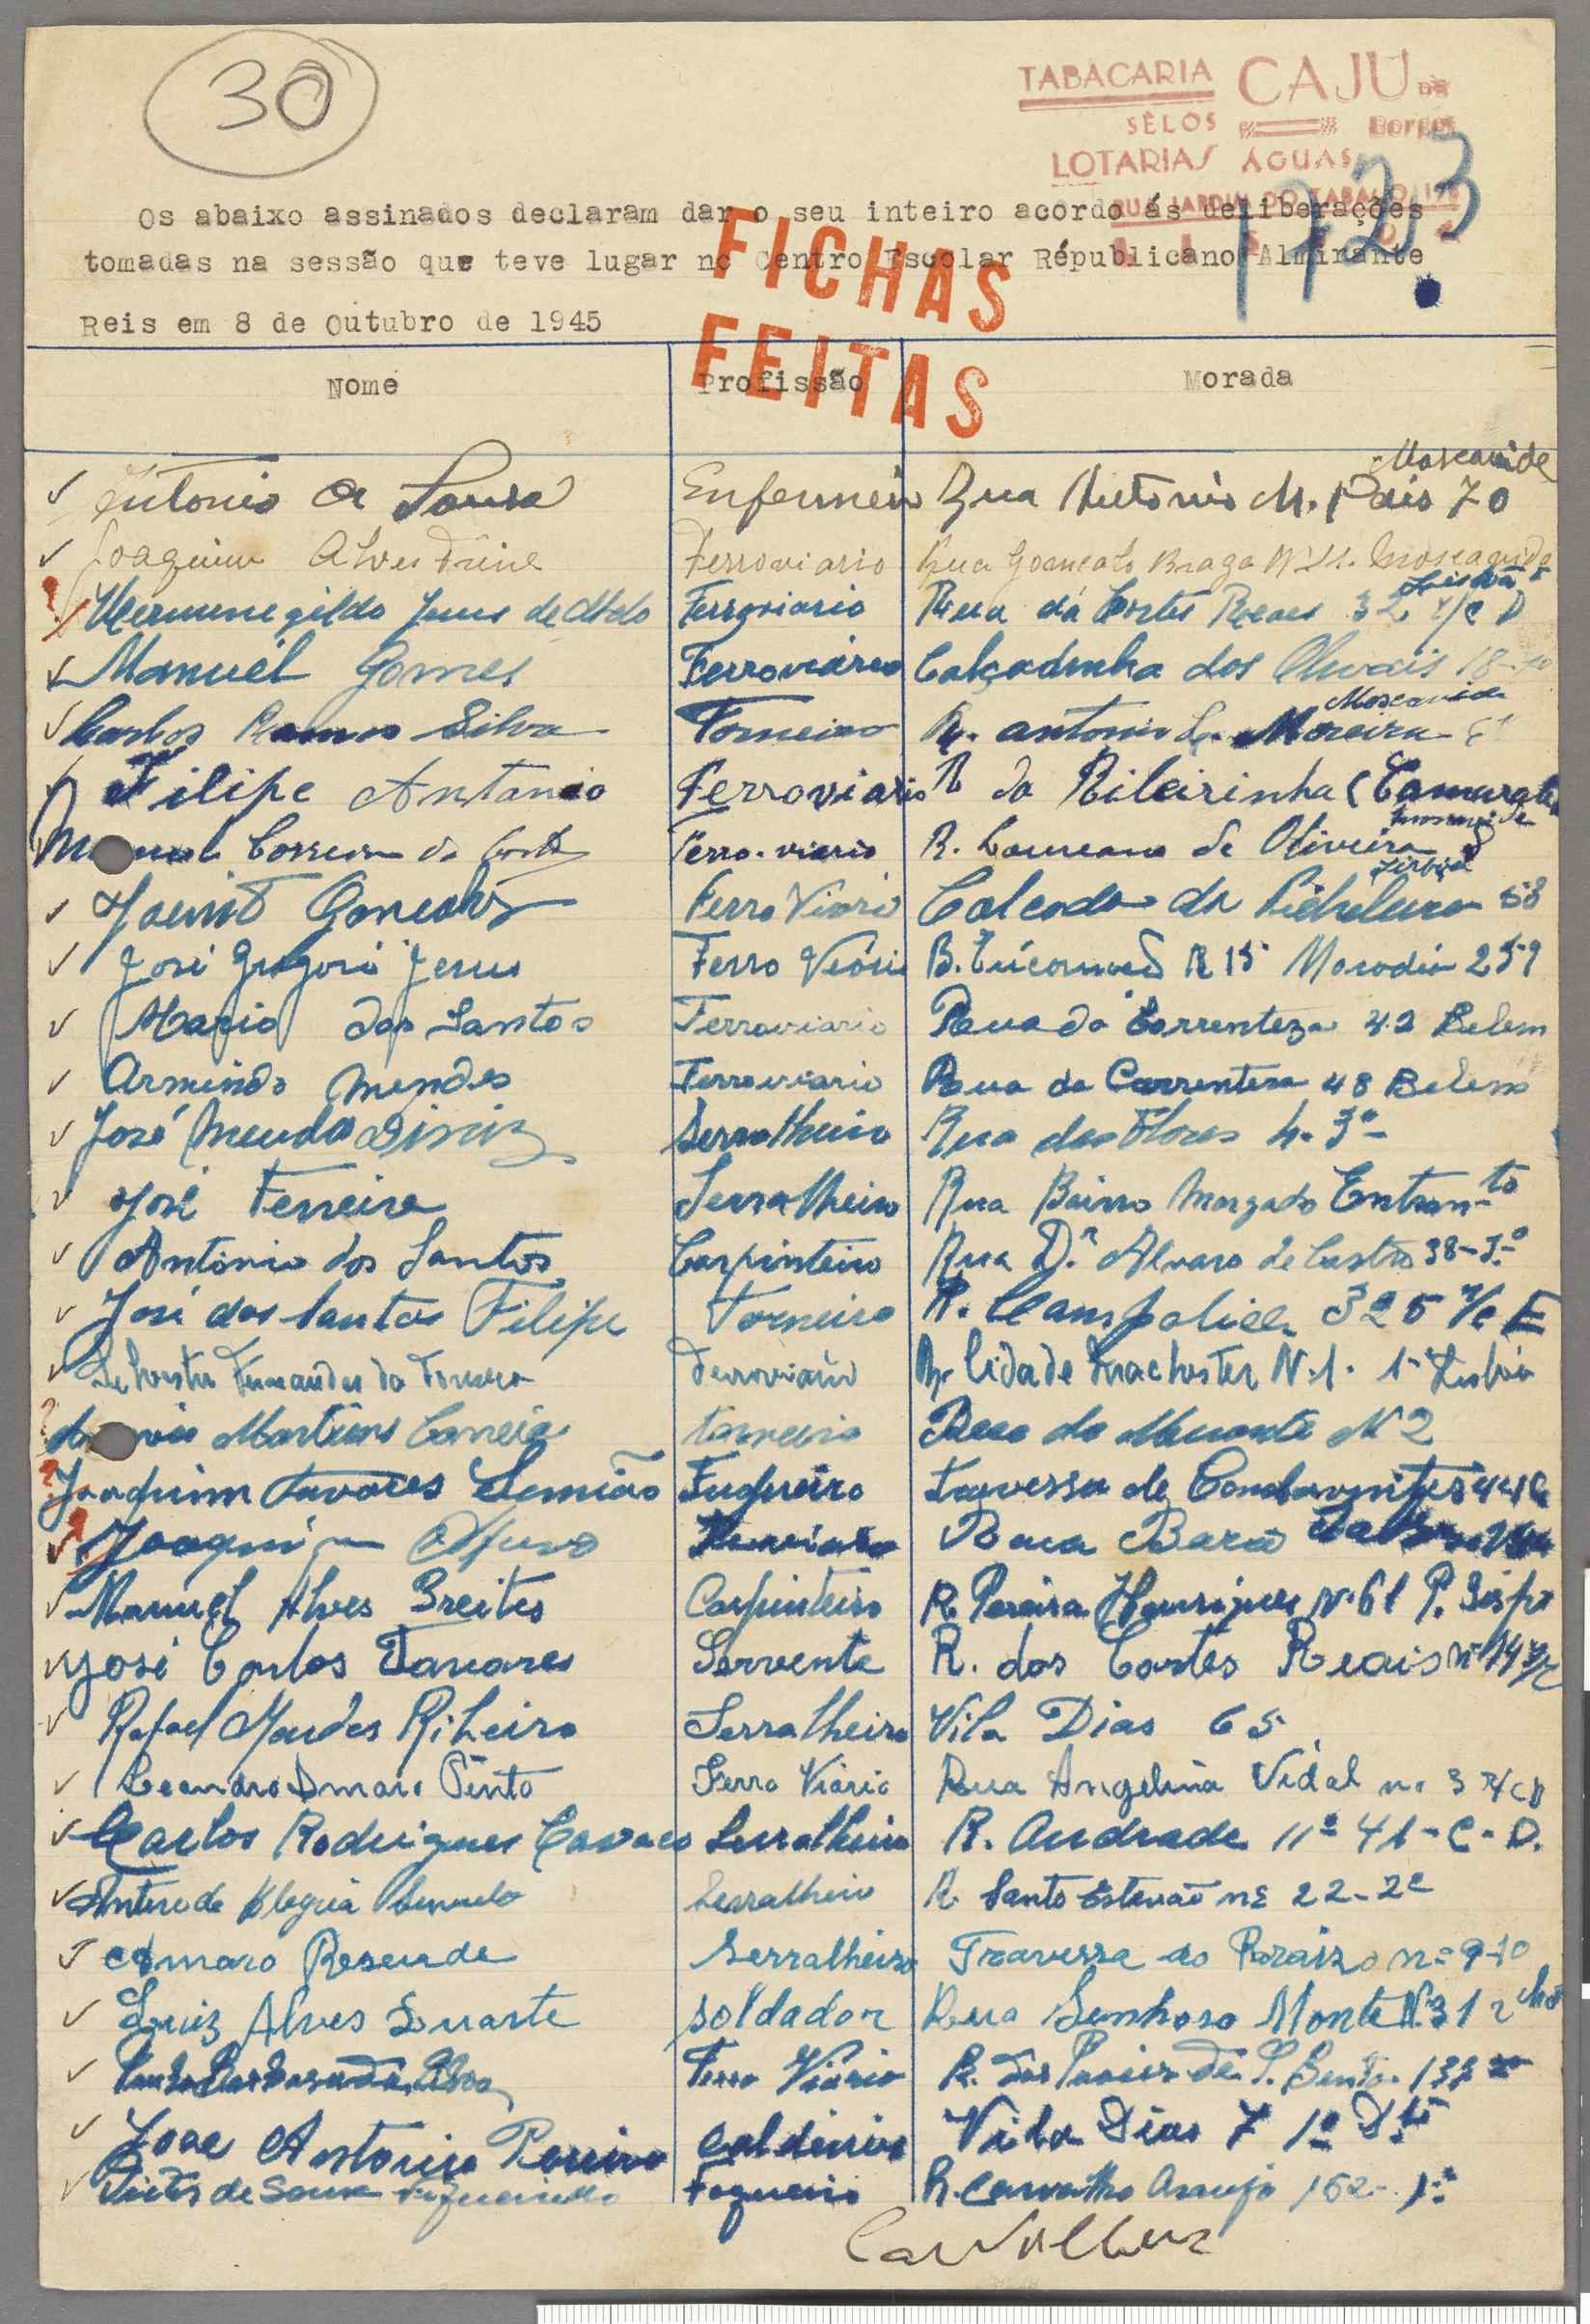 30
TABACARIA CAJÚ DE
SÊLOS Borges
LOTARIAS ÁGUAS
RUA JARDIM DO TABACO
1723
Os abaixo assinados declaram dar o seu inteiro acordo ás deliberações
tomadas na sessão que teve lugar no Centro Escolar Républicano Almirante
Reis em 8 de Outubro de 1945
FICHAS
FEITAS
Nome Profissão Morada
Antonio A Sousa Enfermeiro Rua Antonio M. Pais 70 Moscavide
Joaquim Alves Ferroviario Rua Gonçalo Braga Moscavide
Hermenegildo Jesus de Melo Ferroviario Rua da Cortes Reaes 32 r/c D Lisboa
Manuel Gomes Ferroviario Calçadinha dos Olivais 18
Carlos Ramos Silva Torneiro R. Antonio L. Moreira Moscavide
Filipe António Ferroviario R da Ribeirinha (Camarate
Correia da Costa Ferro-viario R. Laureano de Oliveira 8
Gonçalves Ferro Viario Calçada da Picheleira 58 Lisboa
José Gregorio Jesus Ferro Viário B. Encarnação R 15 Moradia 259
Mario dos Santos Ferroviario Rua da Correnteza 42 Belem
Armindo Mendes Ferroviario Rua da Correnteza 48 Belem
José Mendes Diniz Serralheiro Rua das Flores 4. 3º
José Ferreira Serralheiro Rua Bairro Morgado Entron-to
António dos Santos Carpinteiro Rua Dr. Alvaro de Castro 38-
José dos Santos Filipe Torneiro R. Campolide 325 r/c E
Silvestre Fernandes da Ferroviario R. Cidade Machester N.1. 1º Lisboa
Martins Correia Torneiro Beco do Mirante N 2
Joaquim Tavares Semião Fugueiro Travessa de
Joaquim Ferroviario Rua Barão
Manuel Alves Freites Carpinteiro R. Pereira Henriques Nº 61 P. Bispo
José Carlos Tavares Servente R. das Cortes Reais nº 14 r/c
Rafael Mendes Ribeiro Serralheiro Vila Dias 65
Leandro Pinto Ferro Viário Rua Angelina Vidal nº 3 r/c D
Carlos Rodrigues Cavaco Serralheiro R. Andrade nº 41-C-D.
Antero de Alegria Serralheiro R. Santo Estevão nº 22-2º
Amaro Resende Serralheiro Travessa do Paraizo nº 9-1º
Luiz Alves Duarte Soldador Rua Senhora Monte Nº 31
Ferro Viário R. dos de S. Bento 132
José Antonio Pereira Caldeireiro Vila Dias 7 1º Dto
Victor de Sousa Figueiredo Fogueiro R. Carvalho Araujo 162-1º